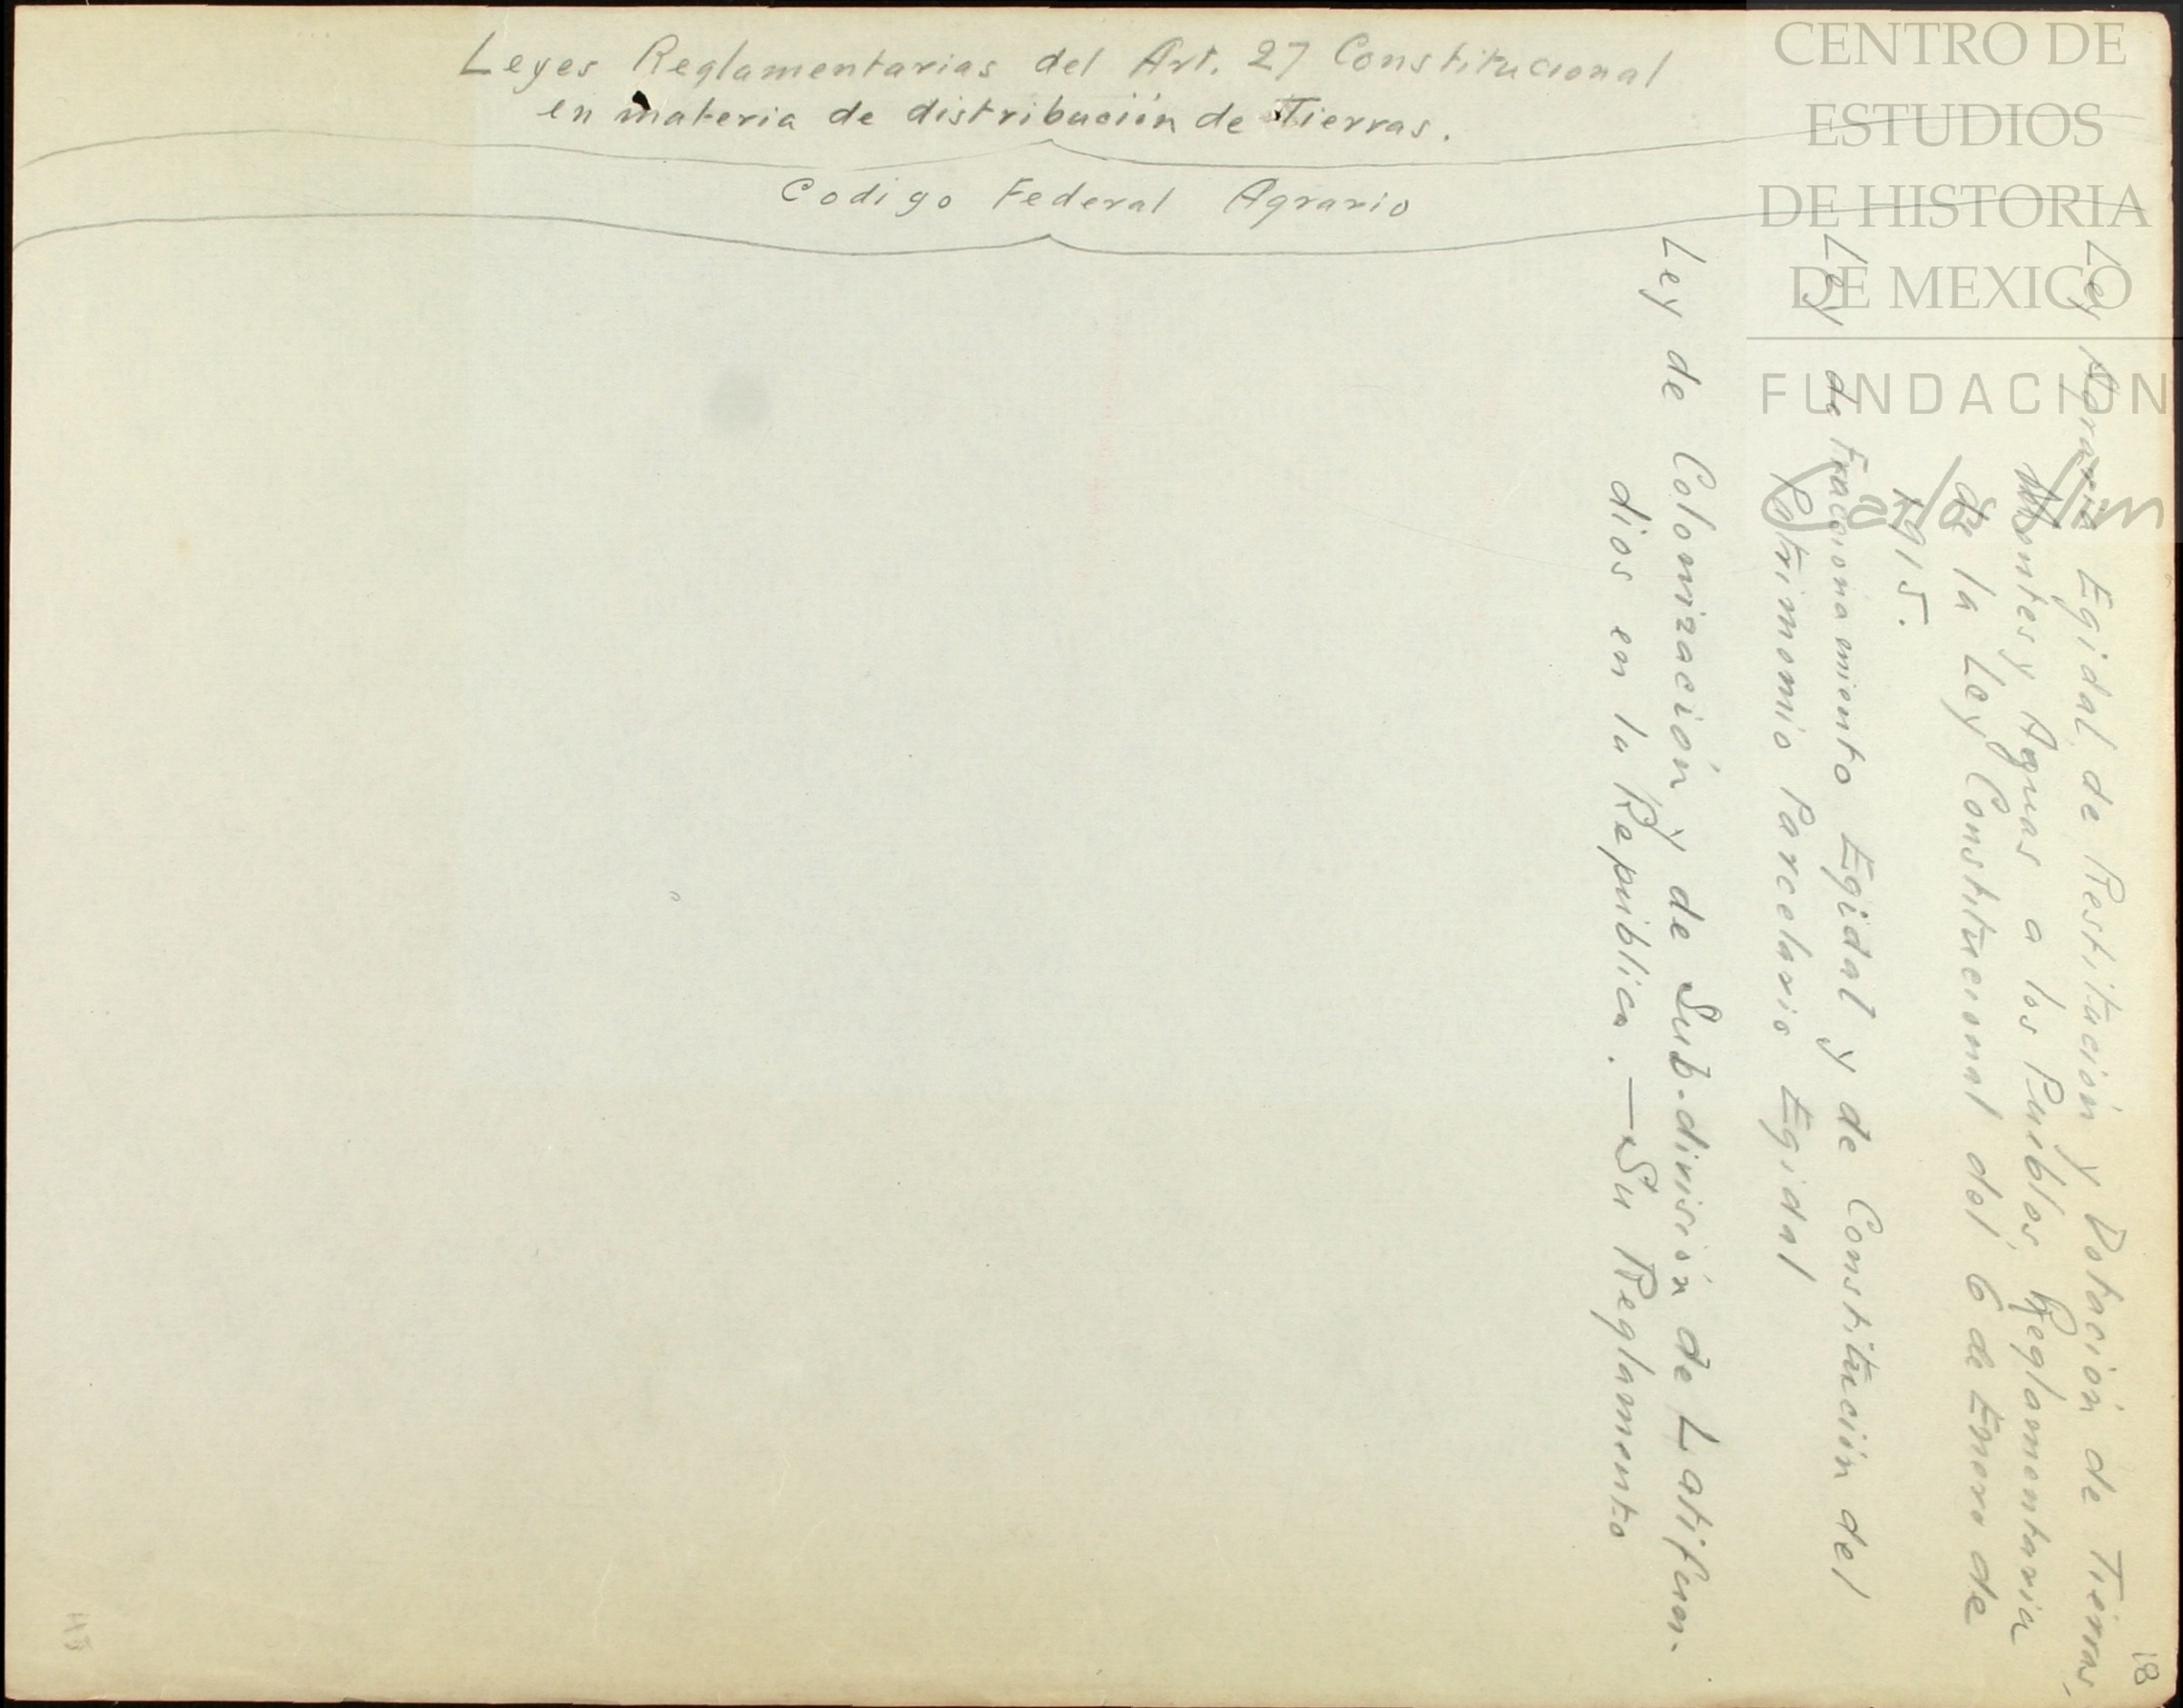 Leyes Reglamentarias del Art. 27 Constitucional
en materia de distribución de Tierras.
Codigo Federal Agrario
Ley Agraria Egidal de Restitución y Dotación de Tierras,
Montes y Aguas a los Pueblos, Reglamentaria
de la Ley Constitucional del 6 de Enero de
1915.
Ley de Fraccionamiento Egidal y de Constitución del
Patrimonio Parcelario Egidal
Ley de Colonización y de Sub-división de Latifun-
dios en la República. — Su Reglamento
18
CENTRO DE
ESTUDIOS
DE HISTORIA
DE MEXICO
FUNDACION
Carlos Slim